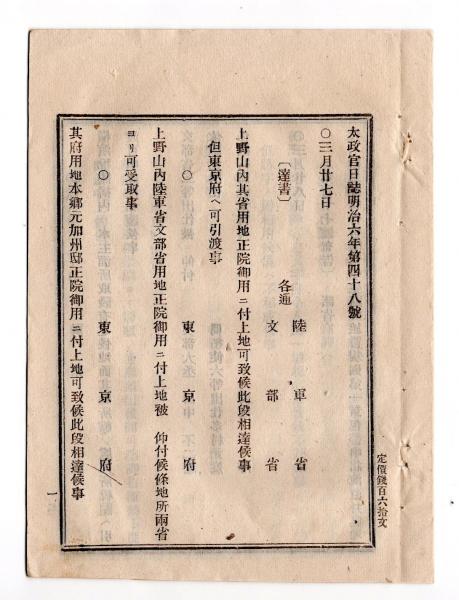 太政官日誌明治六年第四十八號
〇三月廿七日
〔達書〕
各通
陸軍省
文部省
上野山內其省用地正院御用ニ付上地可致候此段相達候事
但東京府ヘ可引渡事
〇
東京府
上野山內陸軍省文部省用地正院御用ニ付上地被 仰付候條地所兩省
ヨリ可受取事
〇
東京府
其府用地本鄉元加州邸正院御用ニ付上地可致候此段相達候事
一
定價錢百六拾文